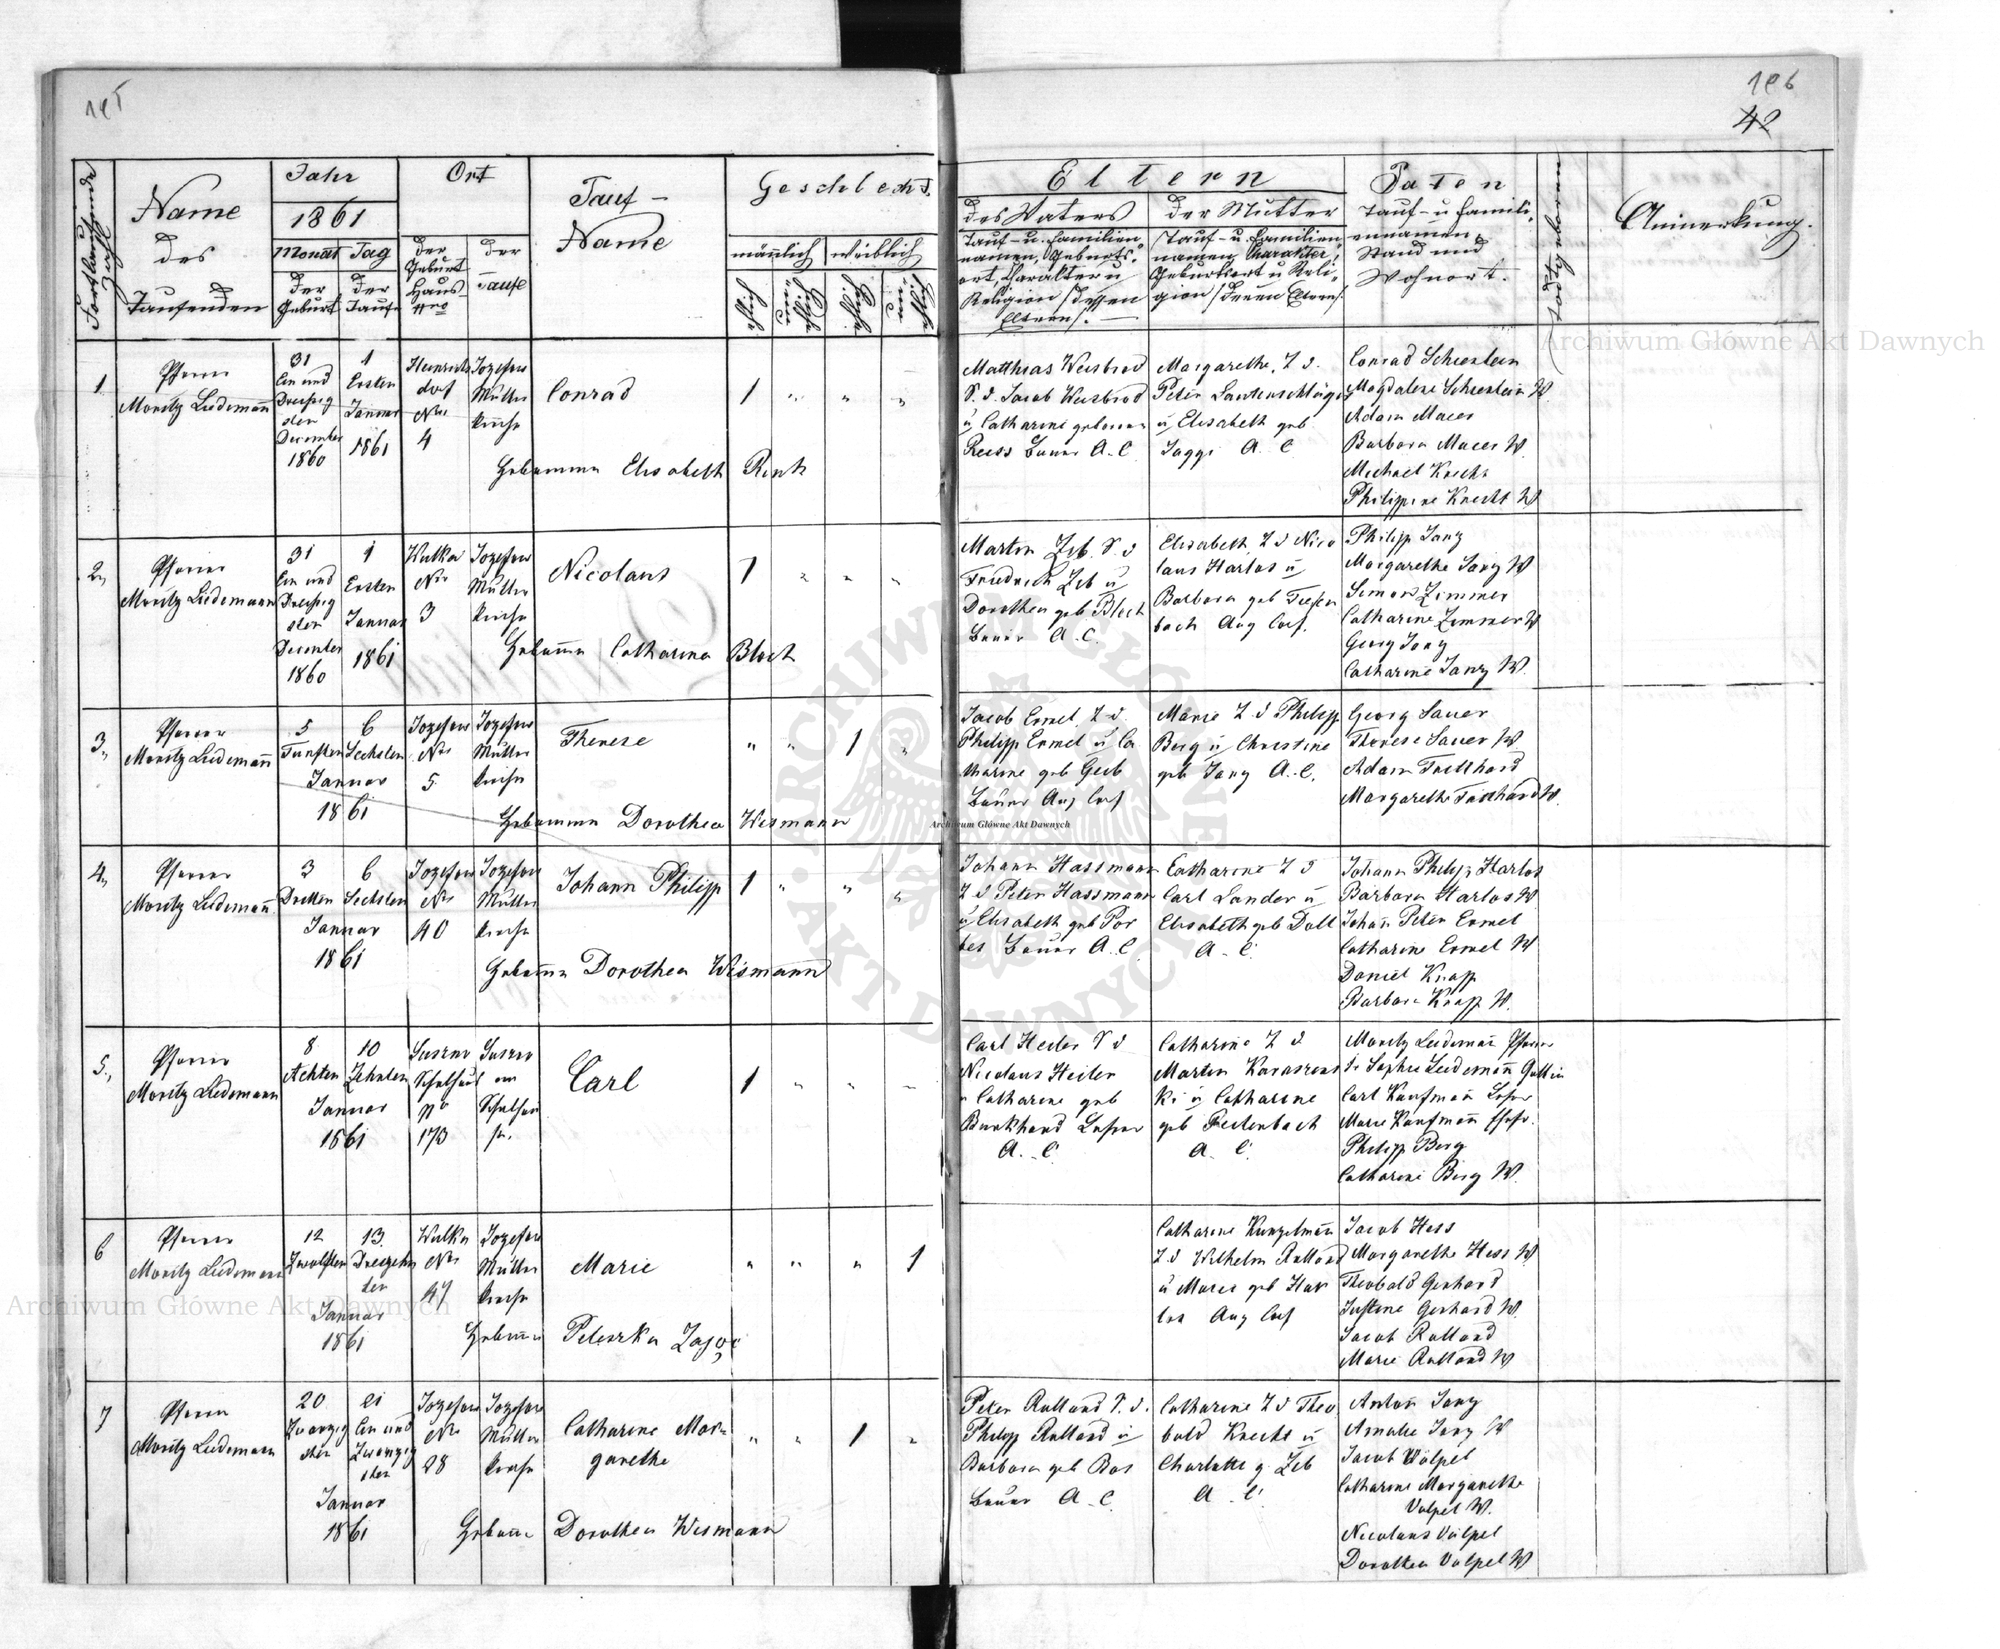 42
Name
des
Taufenden
Jahr
1861
Monat Tag
der der
Geburt Taufe
Ort
der
Geburt
Haus
Nro
der
Taufe
Tauf-
Name
Geschlecht
männlich weiblich
Eltern
des Vaters
Tauf- u. Familien
namen, Geburts-
ort, Charakter u
Religion / dessen
Eltern /.
der Mutter
/ Tauf- u. Familien
namen, Charakter,
Geburtsort u Reli-
gion / deren Eltern /.
Paten
Tauf- u Famili-
ennamen,
Stand und
Wohnort.
Anmerkung.
1
Pfarrer
Moritz Liedemañ
31
Ein und
Dreißig
sten
December
1860
1
Ersten
Januar
1861
Heinrichs
dorf
Nro
4
Jozefow
Mutter
kirche
Conrad
1 " " "
Hebamme Elisabeth Renk
Matthias Weisbrod
S. d. Jacob Weisbrod
u Catharine geborne
Reiss Bauer A. C.
Margarethe, T. d.
Peter Lautenschläger
u Elisabeth geb
Jaggi A. C.
Conrad Schienbein
Magdalene Schienbein W.
Adam Maier
Barbara Maier W.
Michael Knecht
Philippine Knecht W
2,
Pfarrer
Moritz Liedemann
31
Ein und
Dreißig
sten
December
1860
1
Ersten
Januar
1861
Wulka
Nro
3
Jozefow
Mutter
kirche
Nicolaus
1 " " "
Hebam̃e Catharina Bloch
Martin Zeb. S. d
Friedrich Zeb u
Dorothea geb Bloch
Bauer A. C.
Elisabeth T d Nico
laus Harlos u
Barbara geb Tiefen
bach Aug Conf.
Philipp Jany
Margarethe Jany W
Simon Zimmer
Catharine Zimmer W
Georg Jany
Catharine Jany W.
3,
Pfarrer
Moritz Liedemañ
5
Fünften
6
Sechsten
Januar
1861
Jozefow
Nro
5
Jozefow
Mutter
kirche
Therese
" " 1 "
Hebamme Dorothea Wismann
Jacob Ermel, S. d.
Philipp Ermel u Ca
tharine geb Geib
Bauer Aug Conf
Marie T d Philipp
Berg u Christine
geb Jany A. C.
Georg Sauer
Therese Sauer W.
Adam Faulhard
Margarethe Faulhard W.
4,
Pfarrer
Moritz Liedemañ
3
Dritten
6
Sechsten
Januar
1861
Jozefow
Nro
40
Jozefow
Mutter
kirche
Johann Philipp
1 " " "
Hebam̃e Dorothea Wismann
Johann Hassmann
S d Peter Hassmann
u Elisabeth geb Por
tes Bauer A. C.
Catharine T d
Carl Lander u
Elisabeth geb Doll
A. C.
Johann Philipp Harlos
Barbara Harlos W
Johañ Peter Ermel
Catharine Ermel W
Daniel Knapp
Barbara Knapp W.
5,
Pfarrer
Moritz Liedemann
8
Achten
10
Zehnten
Januar
1861
173
Carl
1 " " "
Carl Heiler S d
Nicolaus Heiler
u Catharine geb
Burkhard Lehrer
A. C.
Catharine T d
Martin Karasins
ki u Catharine
geb Breitenbach
A. C.
Moritz Liedemañ Pfarrer
Sophie Liedemañ Gattin
Carl Kaufmañ Lehrer
Marie Kaufmañ
Philipp Berg
Catharine Berg W.
6
Pfarrer
Moritz Liedemann
12
Zwölften
13
Dreizehn
ten
Januar
1861
Wulka
Nro
47
Jozefow
Mutter
kirche
Marie
" " " 1
Hebam̃e Peleszka Zając
Catharine Kunzelmañ
T d Wilhelm Rolland
u Marie geb Har
los Aug Conf
Jacob Hess
Margarethe Hess W
Theobald Gerhard
Justine Gerhard W.
Jacob Rolland
Marie Rolland W
7
Pfarrer
Moritz Liedemann
20
Zwanzig
sten
21
Ein und
Zwanzig
sten
Januar
1861
Jozefow
Nro
28
Jozefow
Mutter
kirche
Catharine Mar-
garethe
" " 1 "
Hebam̃e Dorothea Wismann
Peter Rolland S. d.
Philipp Rolland u
Barbara geb Bas
Bauer A. C.
Catharine T d Theo
bald Knecht u
Charlotte g. Zeb
A. C.
Antoñ Jany
Amalie Jany W
Jacob Völpel
Catharine Margarethe
Völpel W.
Nicolaus Völpel
Dorothea Völpel W
Archiwum Główne Akt Dawnych
Archiwum Główne Akt Dawnych
Archiwum Główne Akt Dawnych
ARCHIWUM GŁÓWNE AKT DAWNYCH